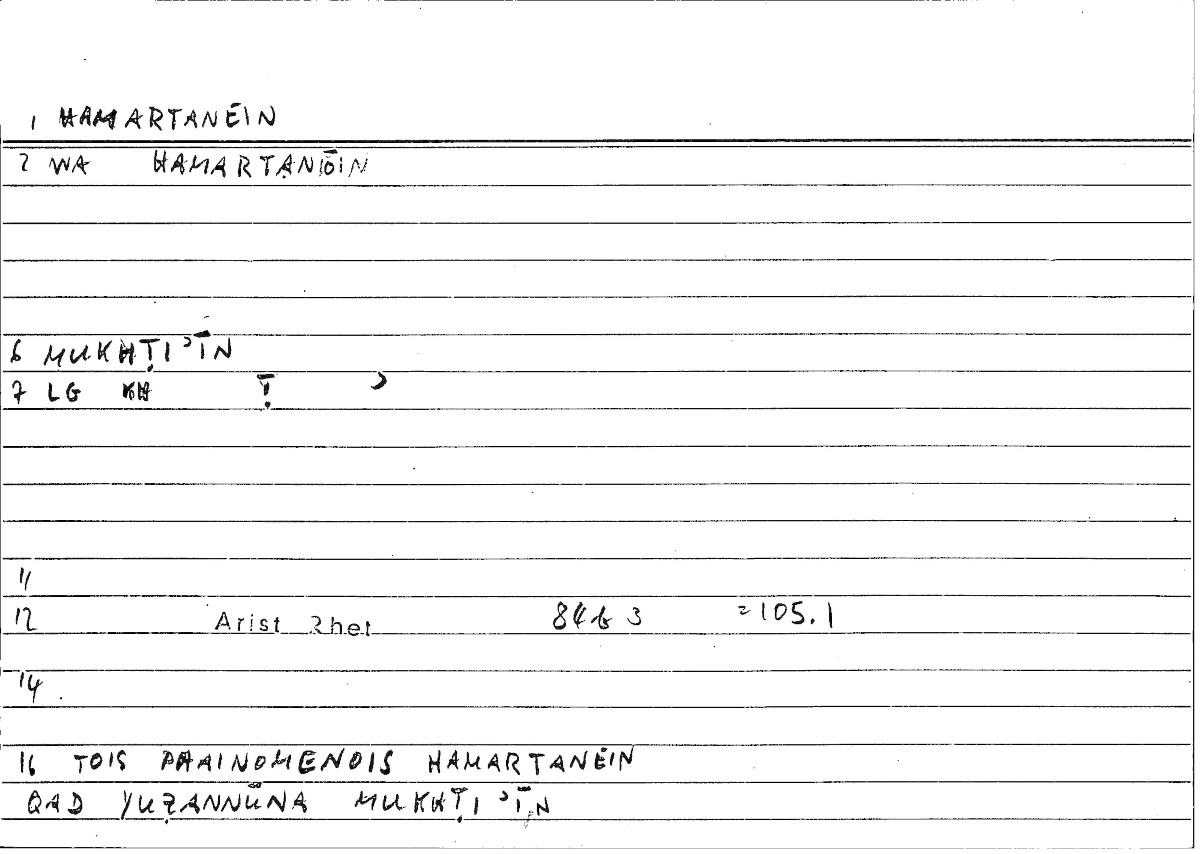 1 HAMARTANEĪN
2 WA HAMARTANŌIN
6 MUKHṬI ʾĪN
7 LG KH Ṭ ʾ
11
12 Arist Rhet 84b 3 =105.1
14
16 TOIS PHAINOMENOIS HAMARTANEĪN
QAD YUẒANNŪNA MUKHṬI ʾĪN